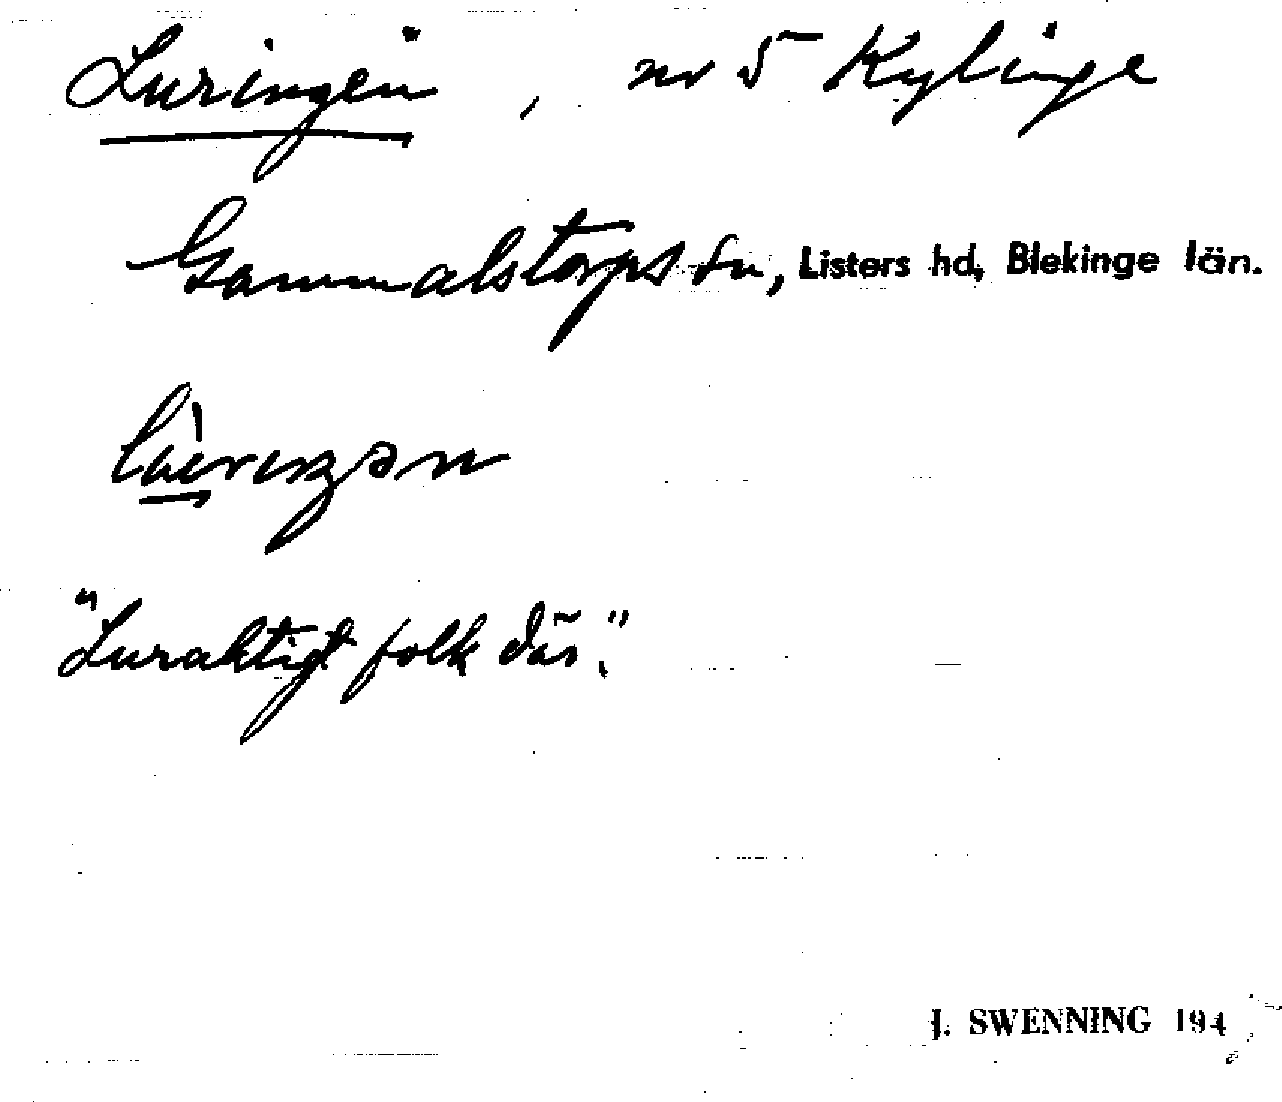 Luringen, nr 5 Kylinge
Gammalstorps sn, Listers hd, Blekinge län.
"Luraktigt folk där."
J. SWENNING 194